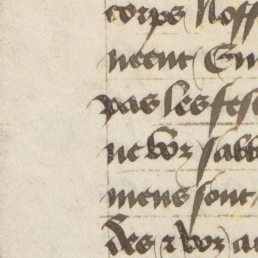 corps Noff
neent En
pas les fes
ne voz sabb
mens sont
des & voz a